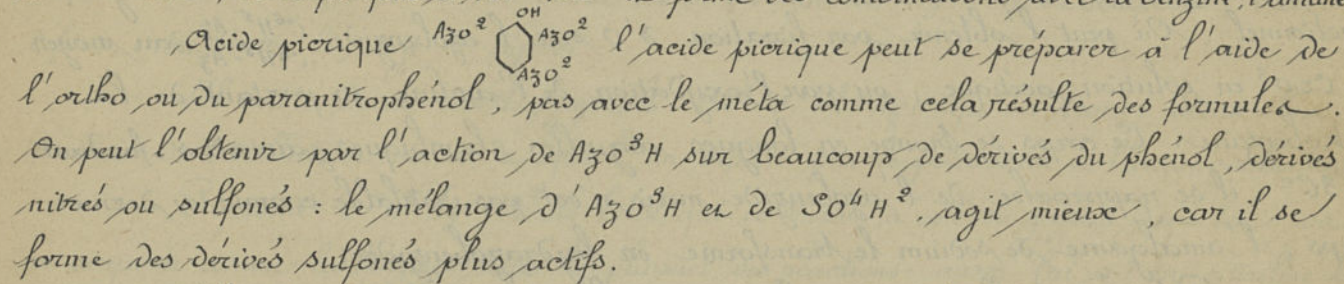 forme des combinaisons avec la benzine, l'aniline
Acide picrique AzO² OH AzO² AzO² l'acide picrique peut se préparer à l'aide de
l'ortho ou du paranitrophénol, pas avec le méta comme cela résulte des formules.
On peut l'obtenir par l'action de AzO³H sur beaucoup de dérivés du phénol, dérivés
nitrés ou sulfonés : le mélange d'AzO³H et de SO⁴H². agit mieux, car il se
forme des dérivés sulfonés plus actifs.